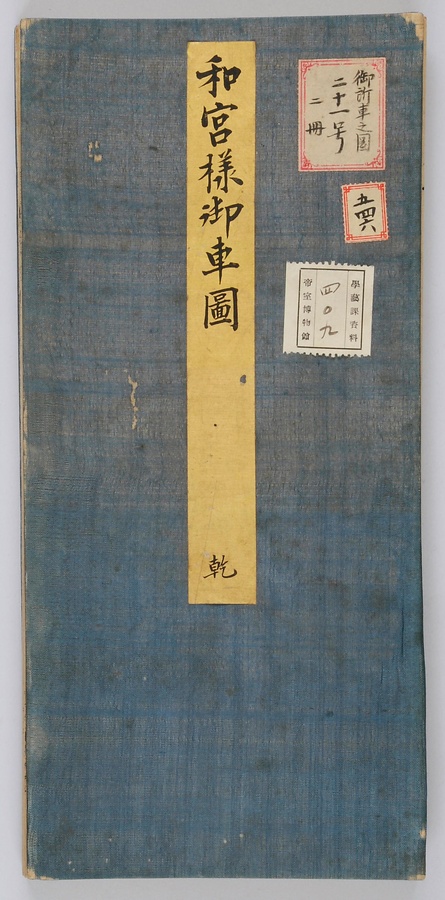 和宮様御車圖
乾
御所車之図
二十一号
二冊
五四六
學藝課資料
四〇九
帝室博物館